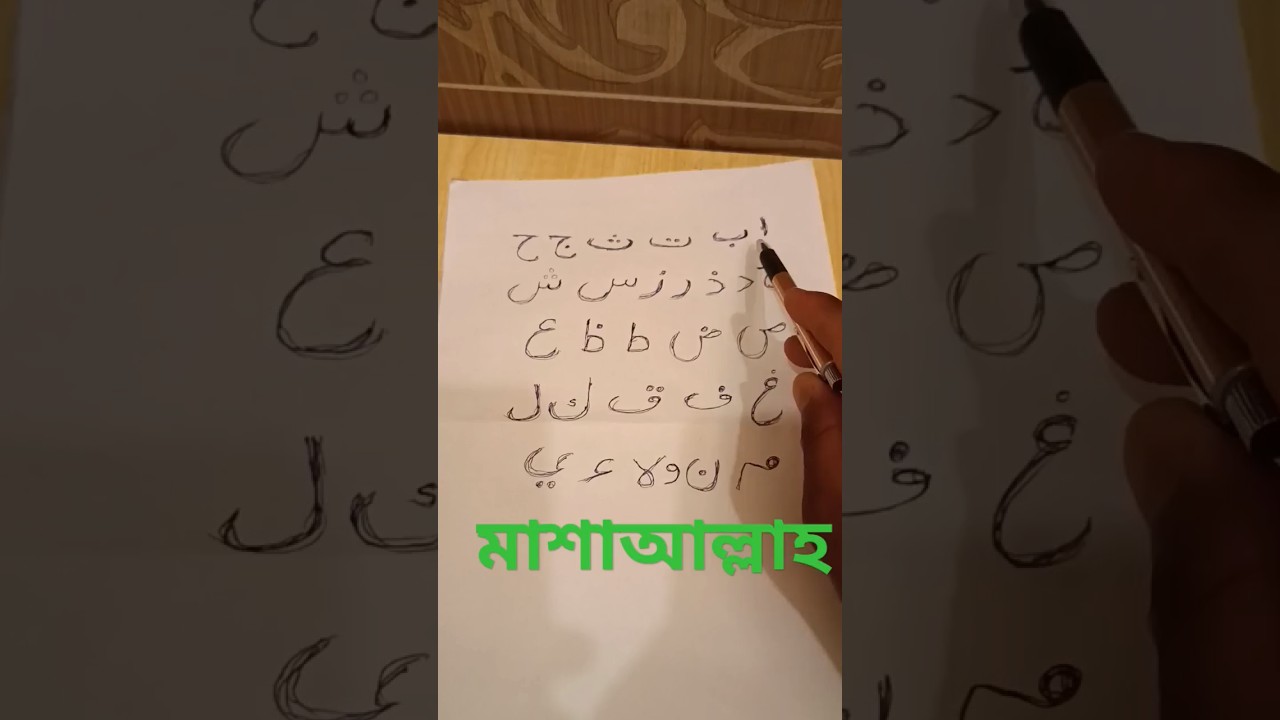 ا ب ت ث ج ح
خ د ذ ر ز س ش
ص ض ط ظ ع
غ ف ق ك ل
م ن و لا ء ي
মাশাআল্লাহ